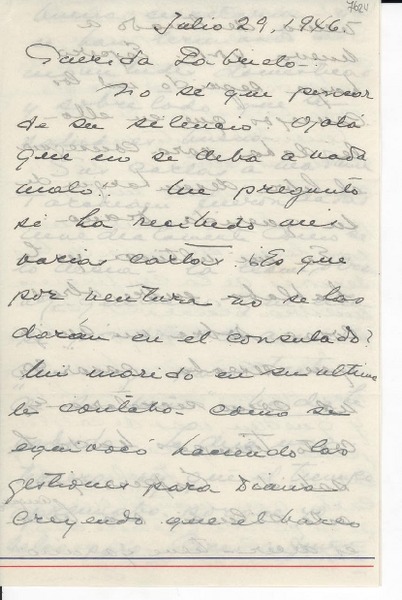 7624
Julio 29, 1946
Querida Gabriela:
No sé que pensar
de su silencio. Ojalá
que no se deba a nada
malo. Me pregunto
si ha recibido mis
varias cartas. ¿Es que
por ventura no se las
darán en el consulado?
Mi marido en su última
le contaba como se
equivocó haciendo las
gestiones para Diana
creyendo que el barco